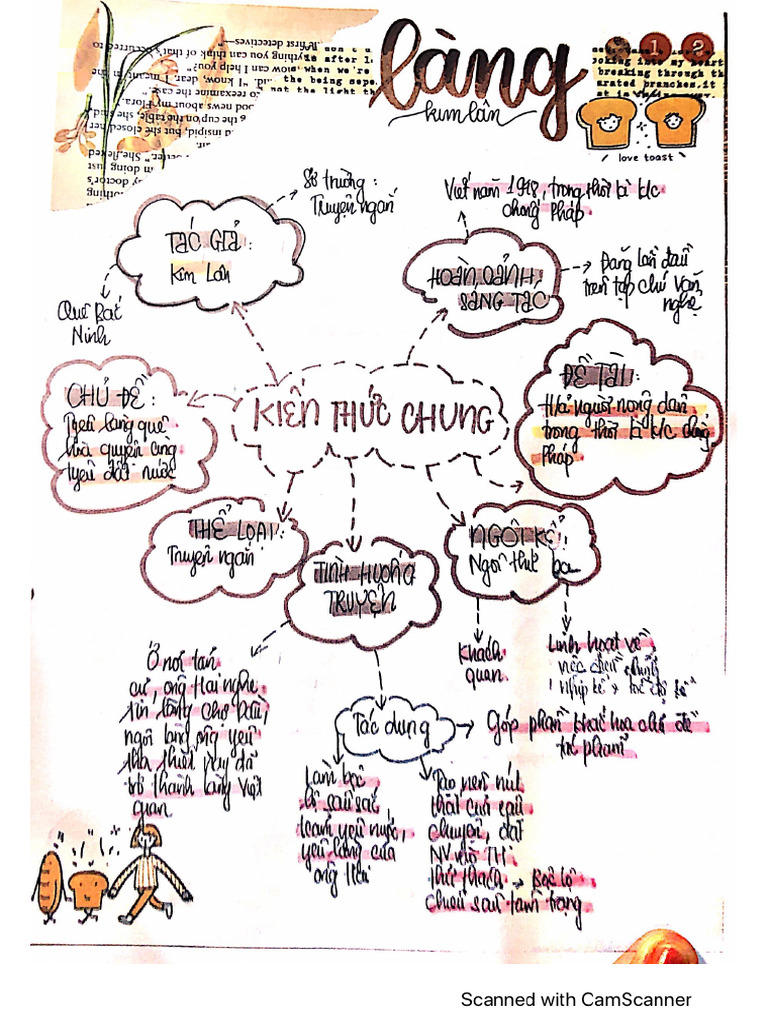 làng
Kim Lân
1 2
love toast
TÁC GIẢ:
Kim Lân
Sở trường:
Truyện ngắn
Quê Bắt
Ninh
HOÀN CẢNH
SÁNG TÁC
Viết năm 1948, trong thời kì k/c
chống Pháp
Đăng lần đầu
trên tạp chí Văn
nghệ
KIẾN THỨC CHUNG
CHỦ ĐỀ:
làng quê
hòa quyện cùng
t/yêu đất nước
ĐỀ TÀI:
người nông dân
trong thời kì k/c chống
Pháp
THỂ LOẠI:
Truyện ngắn
TÌNH HUỐNG
TRUYỆN
NGÔI KỂ:
Ngôi thứ ba
Khách
quan
Linh hoạt về
việc
Ở nơi tản
cư, ông Hai nghe
tin làng chợ Dầu,
ngôi làng ông yêu
tha thiết nay đã
trở thành làng Việt
gian
Tác dụng
Góp phần khắc họa chủ đề
tác phẩm
Làm bộc
lộ sâu sắc,
yêu nước,
yêu làng của
ông Hai
Tạo nên nút
thắt của câu
chuyện, đặt
NV vào TH
thử thách → Bộc lộ
chiều sâu tâm trạng
Scanned with CamScanner